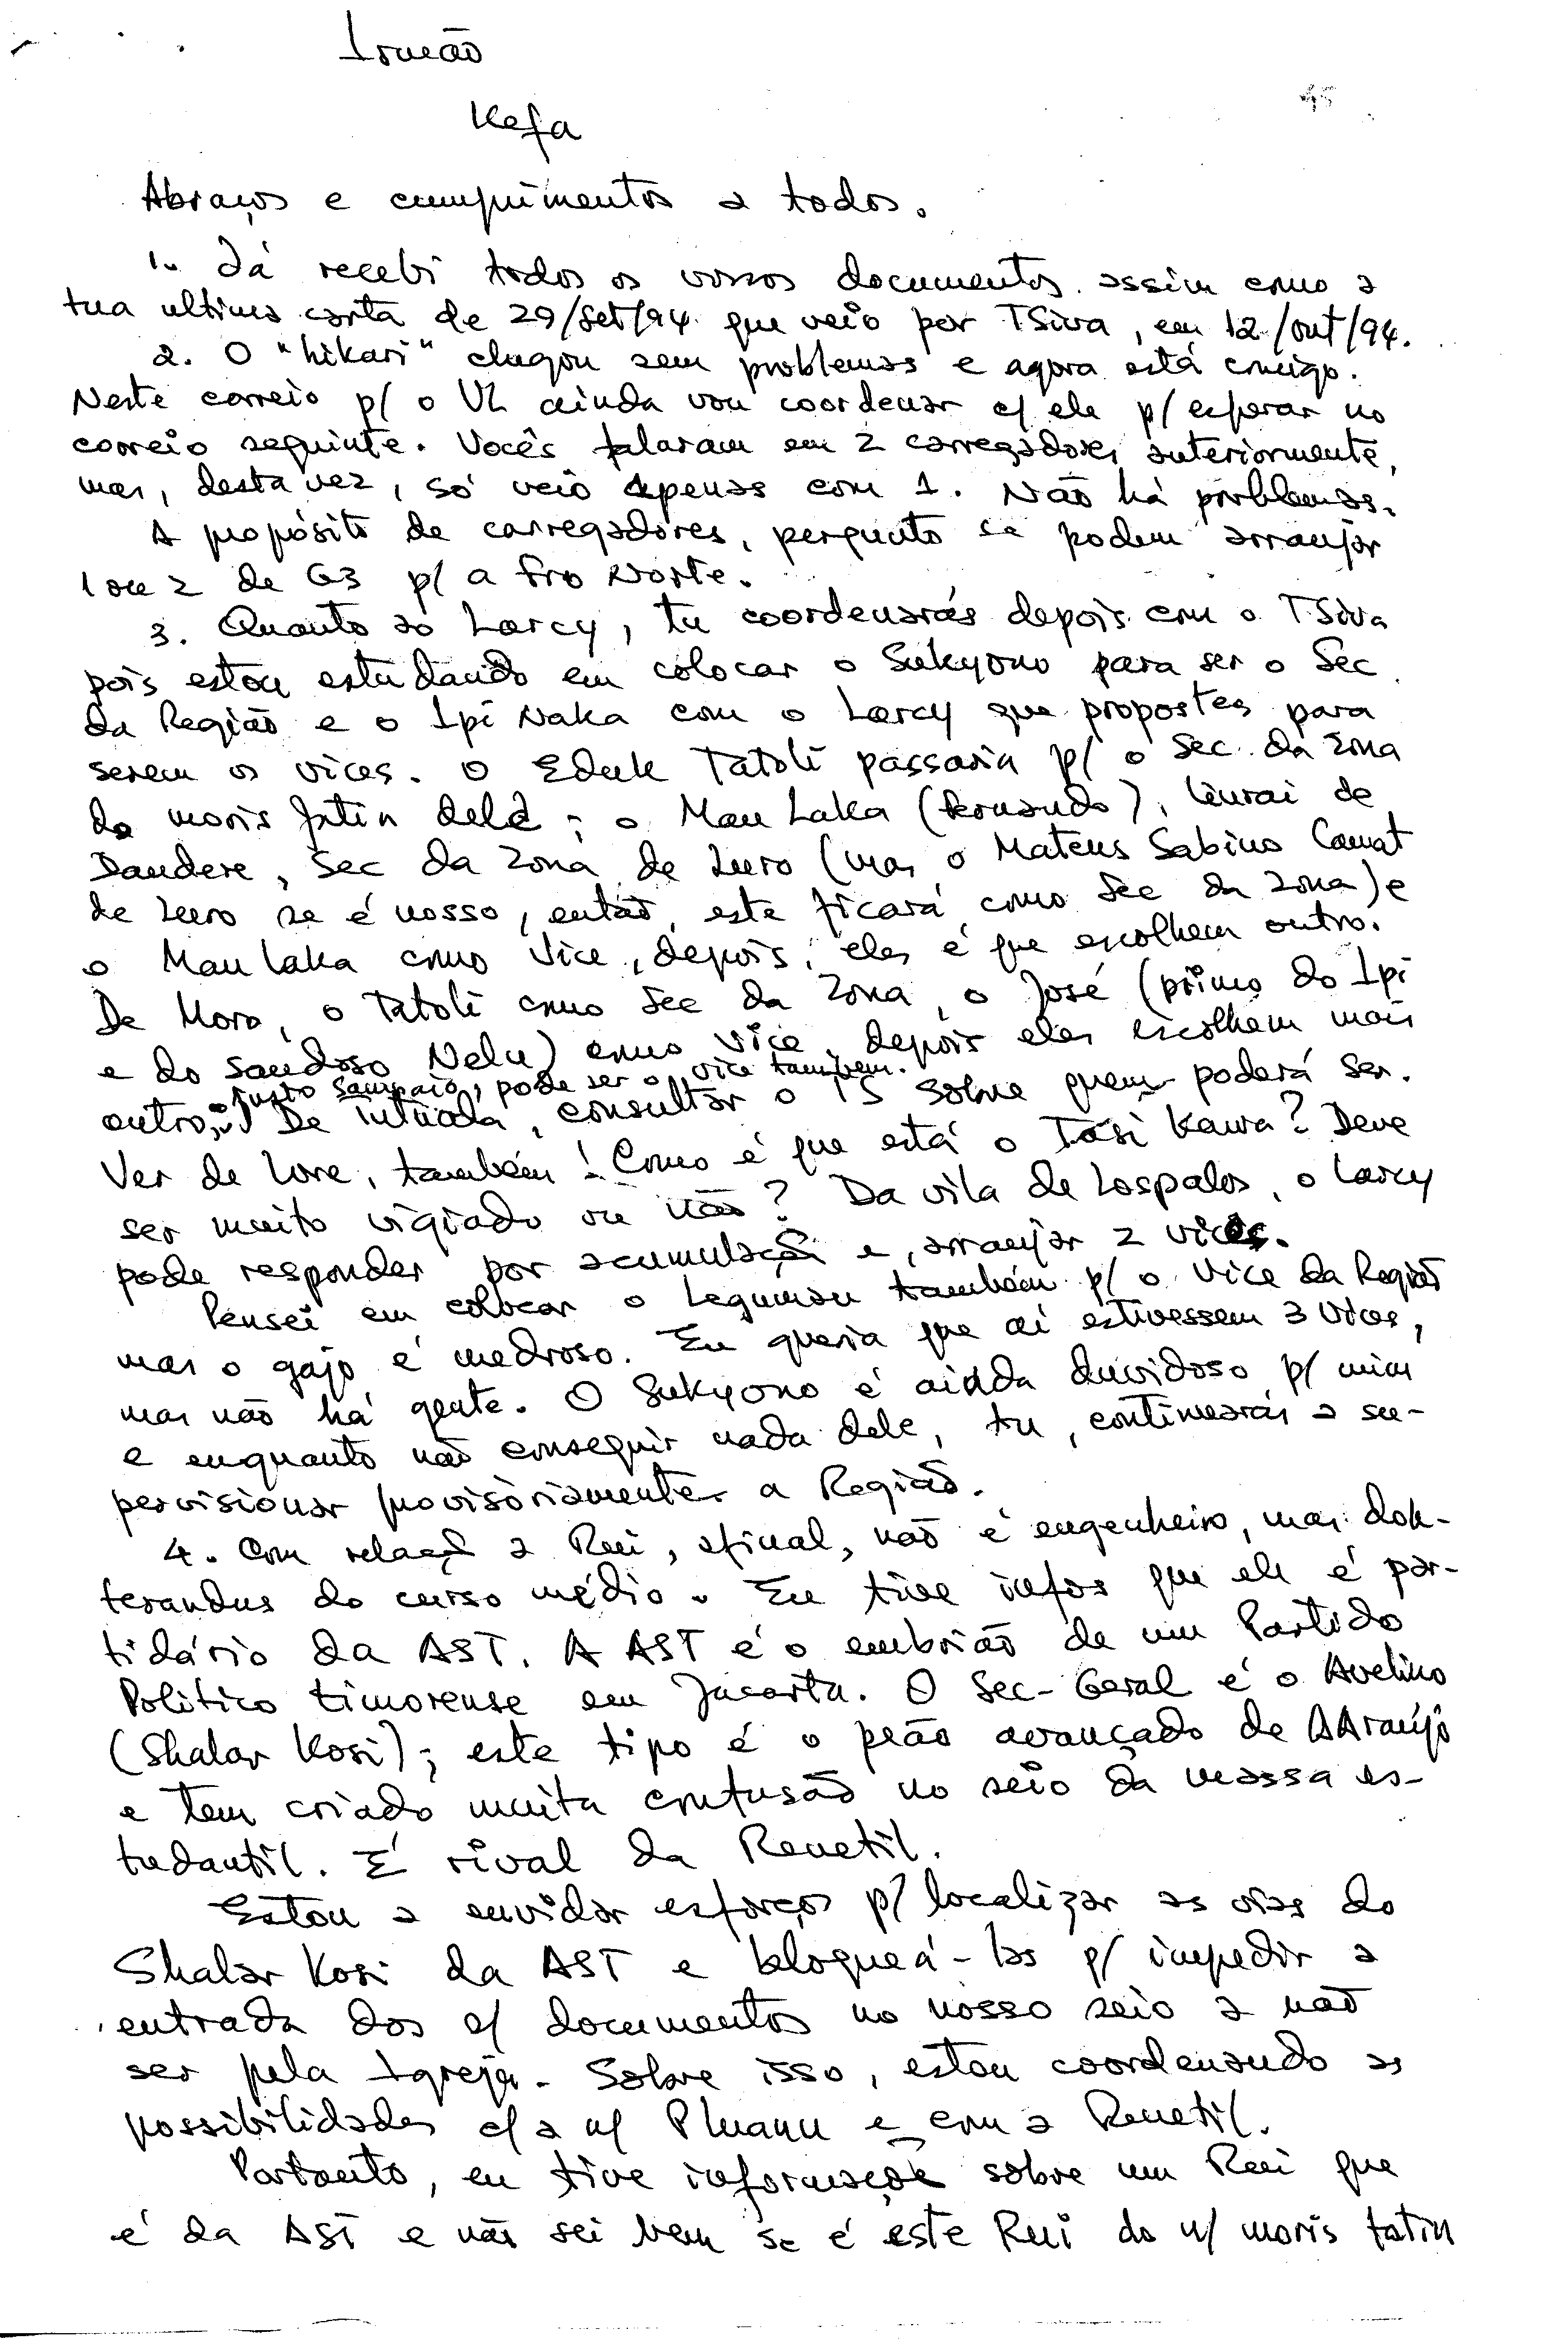 Irmão
45
Kefa
Abraços e cumprimentos a todos.
1. Já recebi todos os vossos documentos assim como a
tua ultima carta de 29/Set/94 que veio por TSiva, em 12/out/94.
2. O "hikari" chegou sem problemas e agora está comigo.
Neste correio p/ o VL ainda vou coordenar c/ ele p/ esperar no
correio seguinte. Vocês falaram em 2 carregadores anteriormente,
mas, desta vez, só veio apenas com 1. Não há problemas.
A propósito de carregadores, pergunto se podem arranjar
1 ou 2 de G3 p/ a Fro Norte.
3. Quanto ao Larcy, tu coordenarás depois com o TSiva
pois estou estudando em colocar o Sukyono para ser o Sec
da Região e o Ipi Naka com o Larcy que propostes para
serem os vices. O Eduk Tatoli passaria p/ o Sec. da Zona
do moris fatin dele; o Mau Laka (Fernando), liurai de
Daudere, Sec da Zona de Luro (mas o Mateus Sabino Camat
de Luro se é nosso, então, este ficará como Sec da Zona) e
o Mau Laka como Vice, depois, eles é que escolhem outro.
De Moro, o Tatoli como Sec da Zona, o José (primo do Ipi
e do saudoso Nelu) como Vice, depois eles escolhem mais
Justo Sampaio, pode ser o vice também.
outro. De Tutuala, consultar o TS sobre quem poderá ser.
Ver de Lore, também! Como é que está o Tasi Kawa? Deve
ser muito vigiado ou não? Da vila de Lospalos, o Larcy
pode responder por acumulação e, arranjar 2 vices.
Pensei em colocar o Legumau também p/ o Vice da Região
mas o gajo é medroso. Eu queria que aí estivessem 3 vices,
mas não há gente. O Sukyono é ainda duvidoso p/ mim
e enquanto não conseguir nada dele, tu, continuarás a su-
pervisionar provisòriamente a Região.
4. Com relação a Rui, afinal, não é engenheiro, mas dok-
terandus do curso médio. Eu tive infos que ele é par-
tidário da AST. A AST é o embrião de um Partido
Politico timorense em Jacarta. O Sec-Geral é o Avelino
(Shalar Kosi); este tipo é o peão avançado de AAraújo
e tem criado muita confusão no seio da massa es-
tudantil. É rival da Renetil.
Estou a envidar esforços p/ localizar as vias do
Shalar Kosi da AST e bloqueá-las p/ impedir a
entrada dos s/ documentos no nosso seio a não
ser pela Igreja. Sobre isso, estou coordenando as
possibilidades c/ a n/ Pluanu e com a Renetil.
Portanto, eu tive informação sobre um Rui que
é da AST e não sei bem se é este Rui do n/ moris fatin